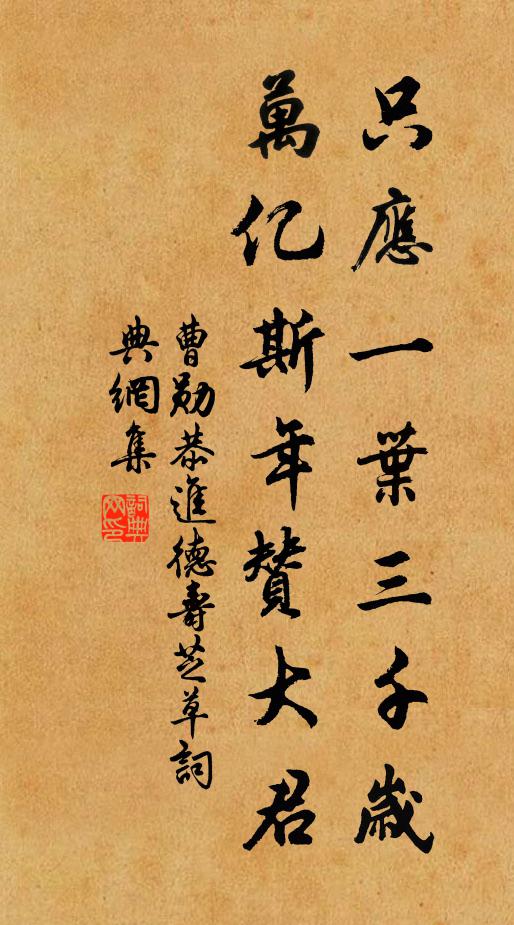 只應一葉三千歲
萬亿斯年贊大君
曹勛恭進德壽芝草詞
典網集
詞典
网印